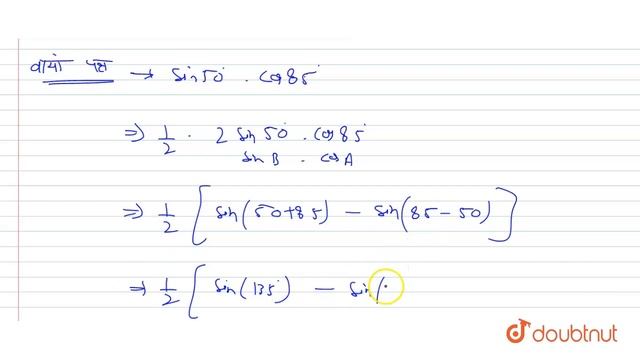 बायाँ पक्ष → sin50° . cos85°
⇒ 1/2 . 2 sin50° . cos85°
sin B . cos A
⇒ 1/2 [ sin(50+85) − sin(85−50) ]
⇒ 1/2 [ sin(135°) − sin(
doubtnut